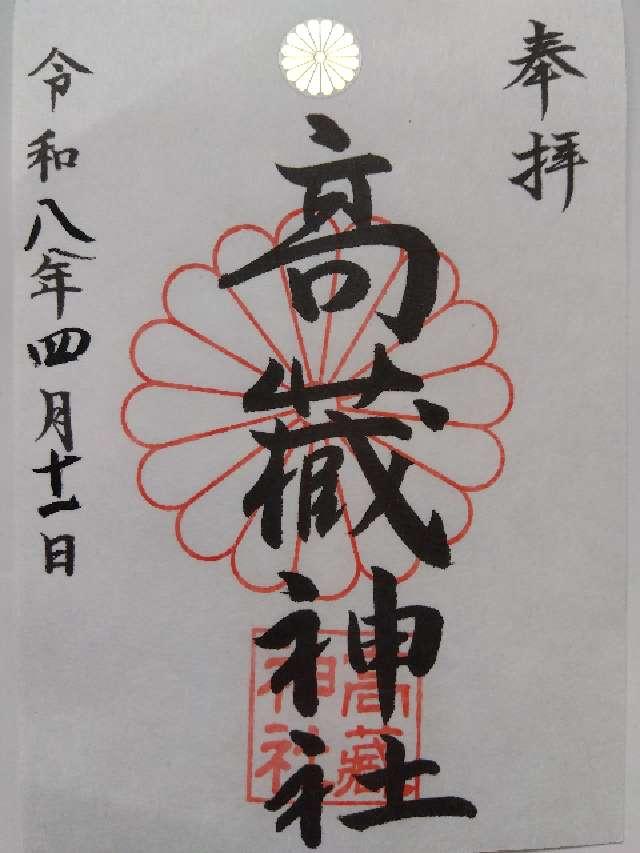 奉拝
高蔵神社
高藏神社
令和八年四月十一日